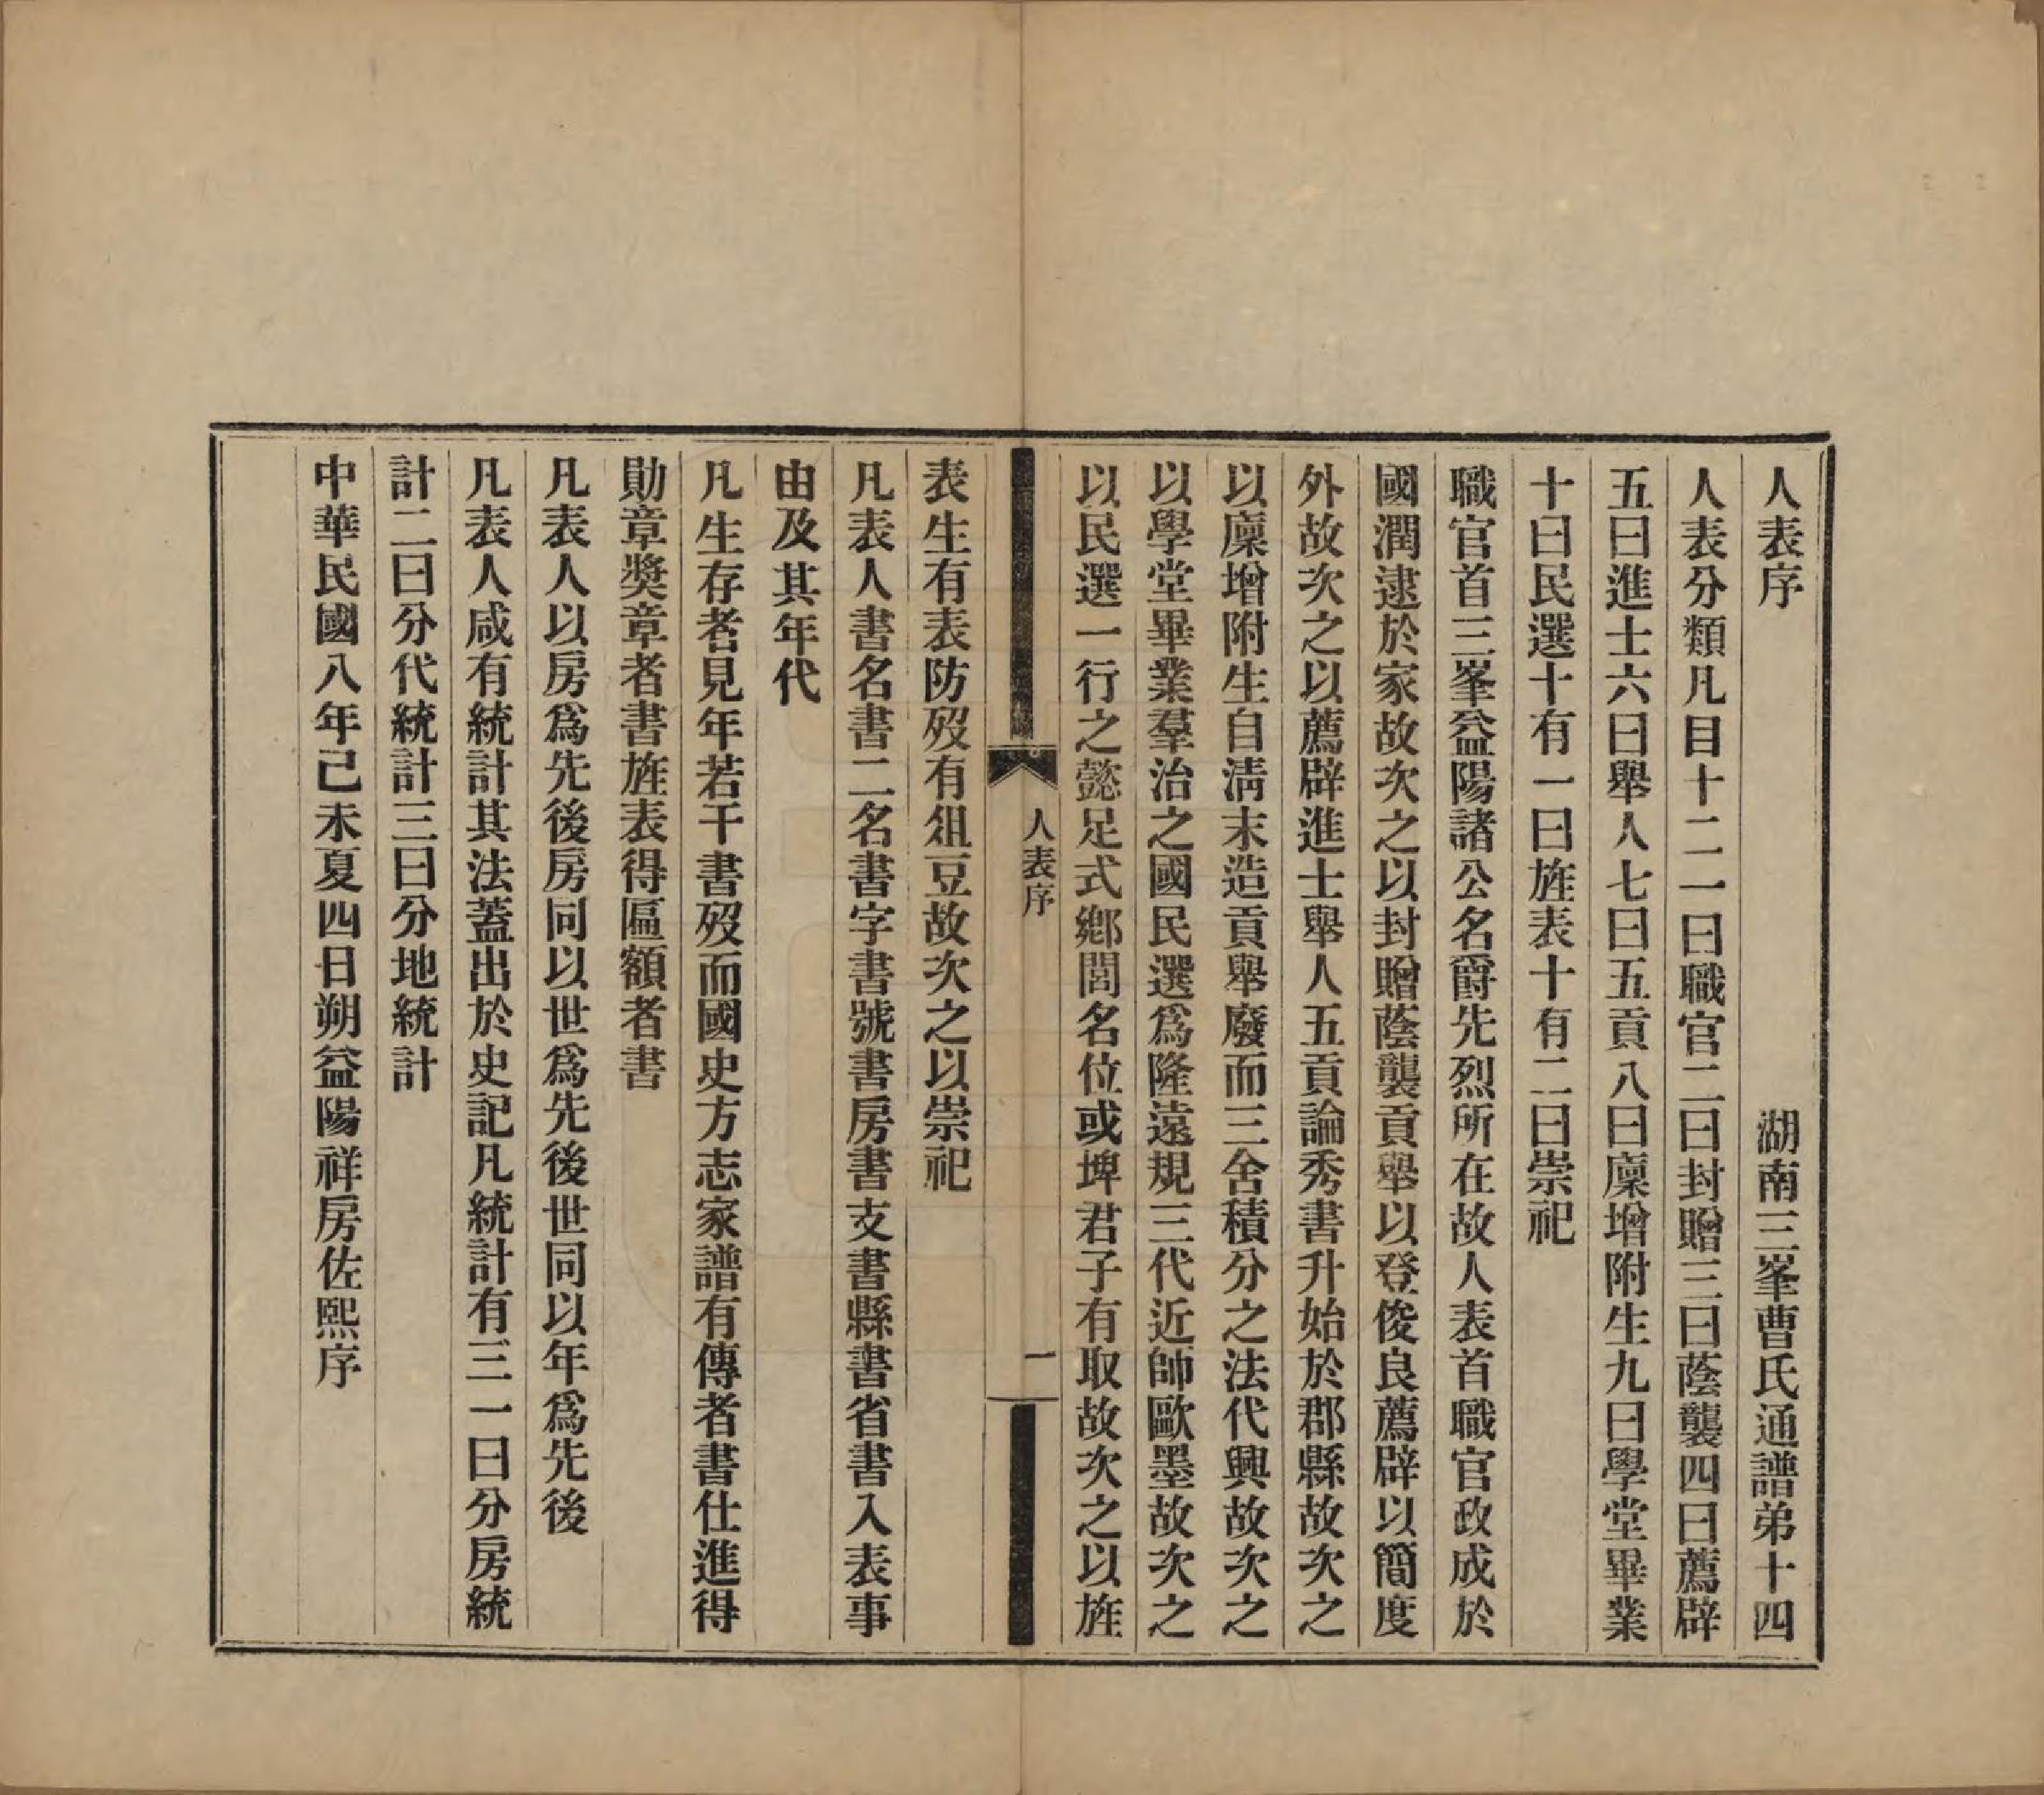 人表序　湖南三峯曹氏通譜弟十四
人表分類凡目十二一曰職官二曰封贈三曰蔭襲四曰薦辟
五曰進士六曰舉人七曰五貢八曰廩增附生九曰學堂畢業
十曰民選十有一曰旌表十有二曰崇祀
職官首三峯益陽諸公名爵先烈所在故人表首職官政成於
國潤逮於家故次之以封贈蔭襲貢舉以登俊良薦辟以簡度
外故次之以薦辟進士舉人五貢論秀書升始於郡縣故次之
以廩增附生自淸末造貢舉廢而三舍積分之法代興故次之
以學堂畢業羣治之國民選爲隆遠規三代近師歐墨故次之
以民選一行之懿足式鄉閭名位或埤君子有取故次之以旌
人表序
一
表生有表防歿有俎豆故次之以崇祀
凡表人書名書二名書字書號書房書支書縣書省書入表事
由及其年代
凡生存者見年若干書歿而國史方志家譜有傳者書仕進得
勛章獎章者書旌表得匾額者書
凡表人以房爲先後房同以世爲先後世同以年爲先後
凡表人咸有統計其法蓋出於史記凡統計有三一曰分房統
計二曰分代統計三曰分地統計
中華民國八年己未夏四日朔益陽祥房佐熙序